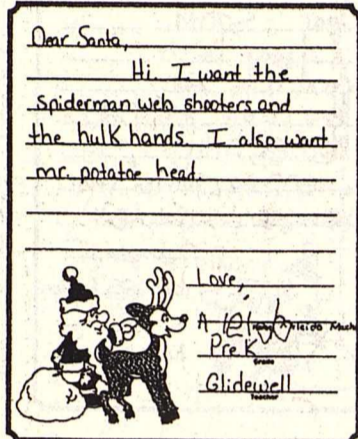 Dear Santa,
Hi. I want the
spiderman web shooters and
the hulk hands. I also want
mr. potatoe head.
Love,
Pre.K
Grade
Glidewell
Teacher